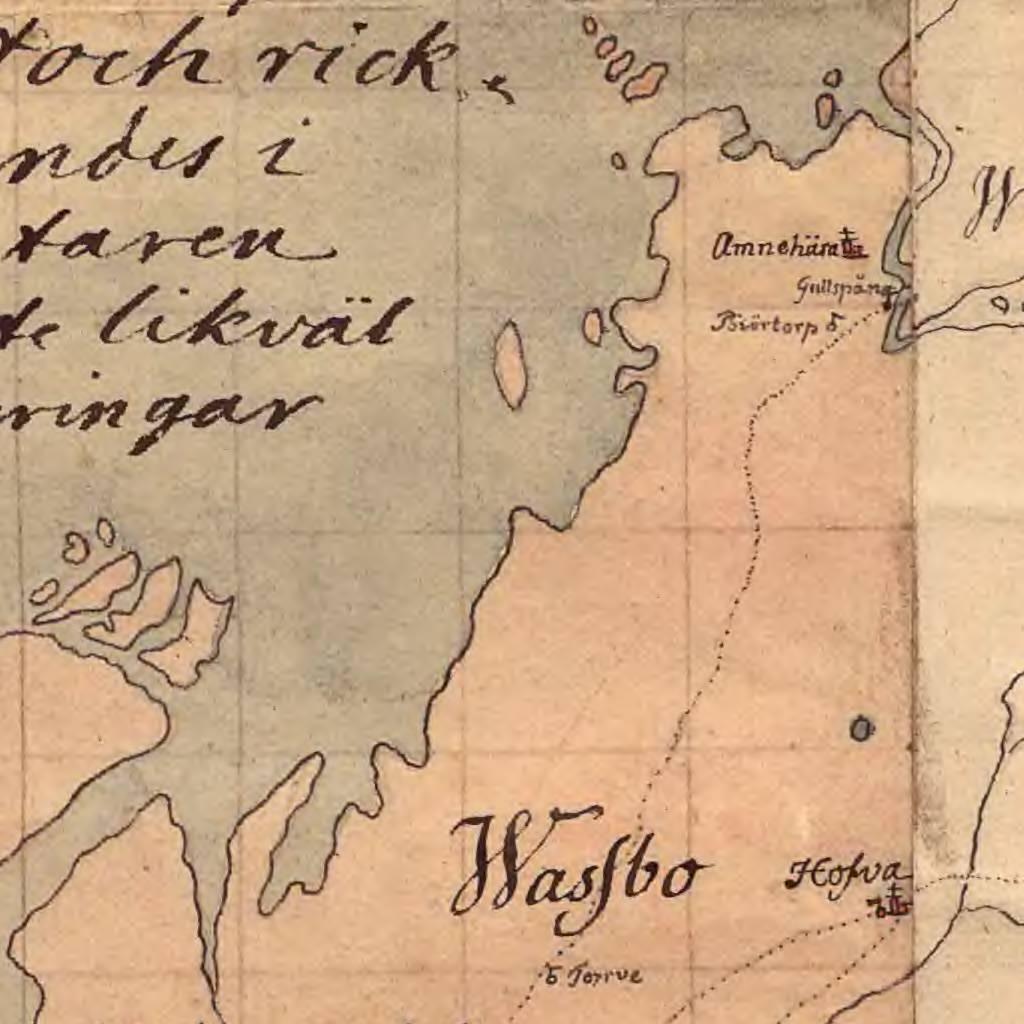 och rick
i
taren
likväl
ringar
W
Amnehära
Gullspång
Biörtorp
Wassbo
Hofva
Torrve